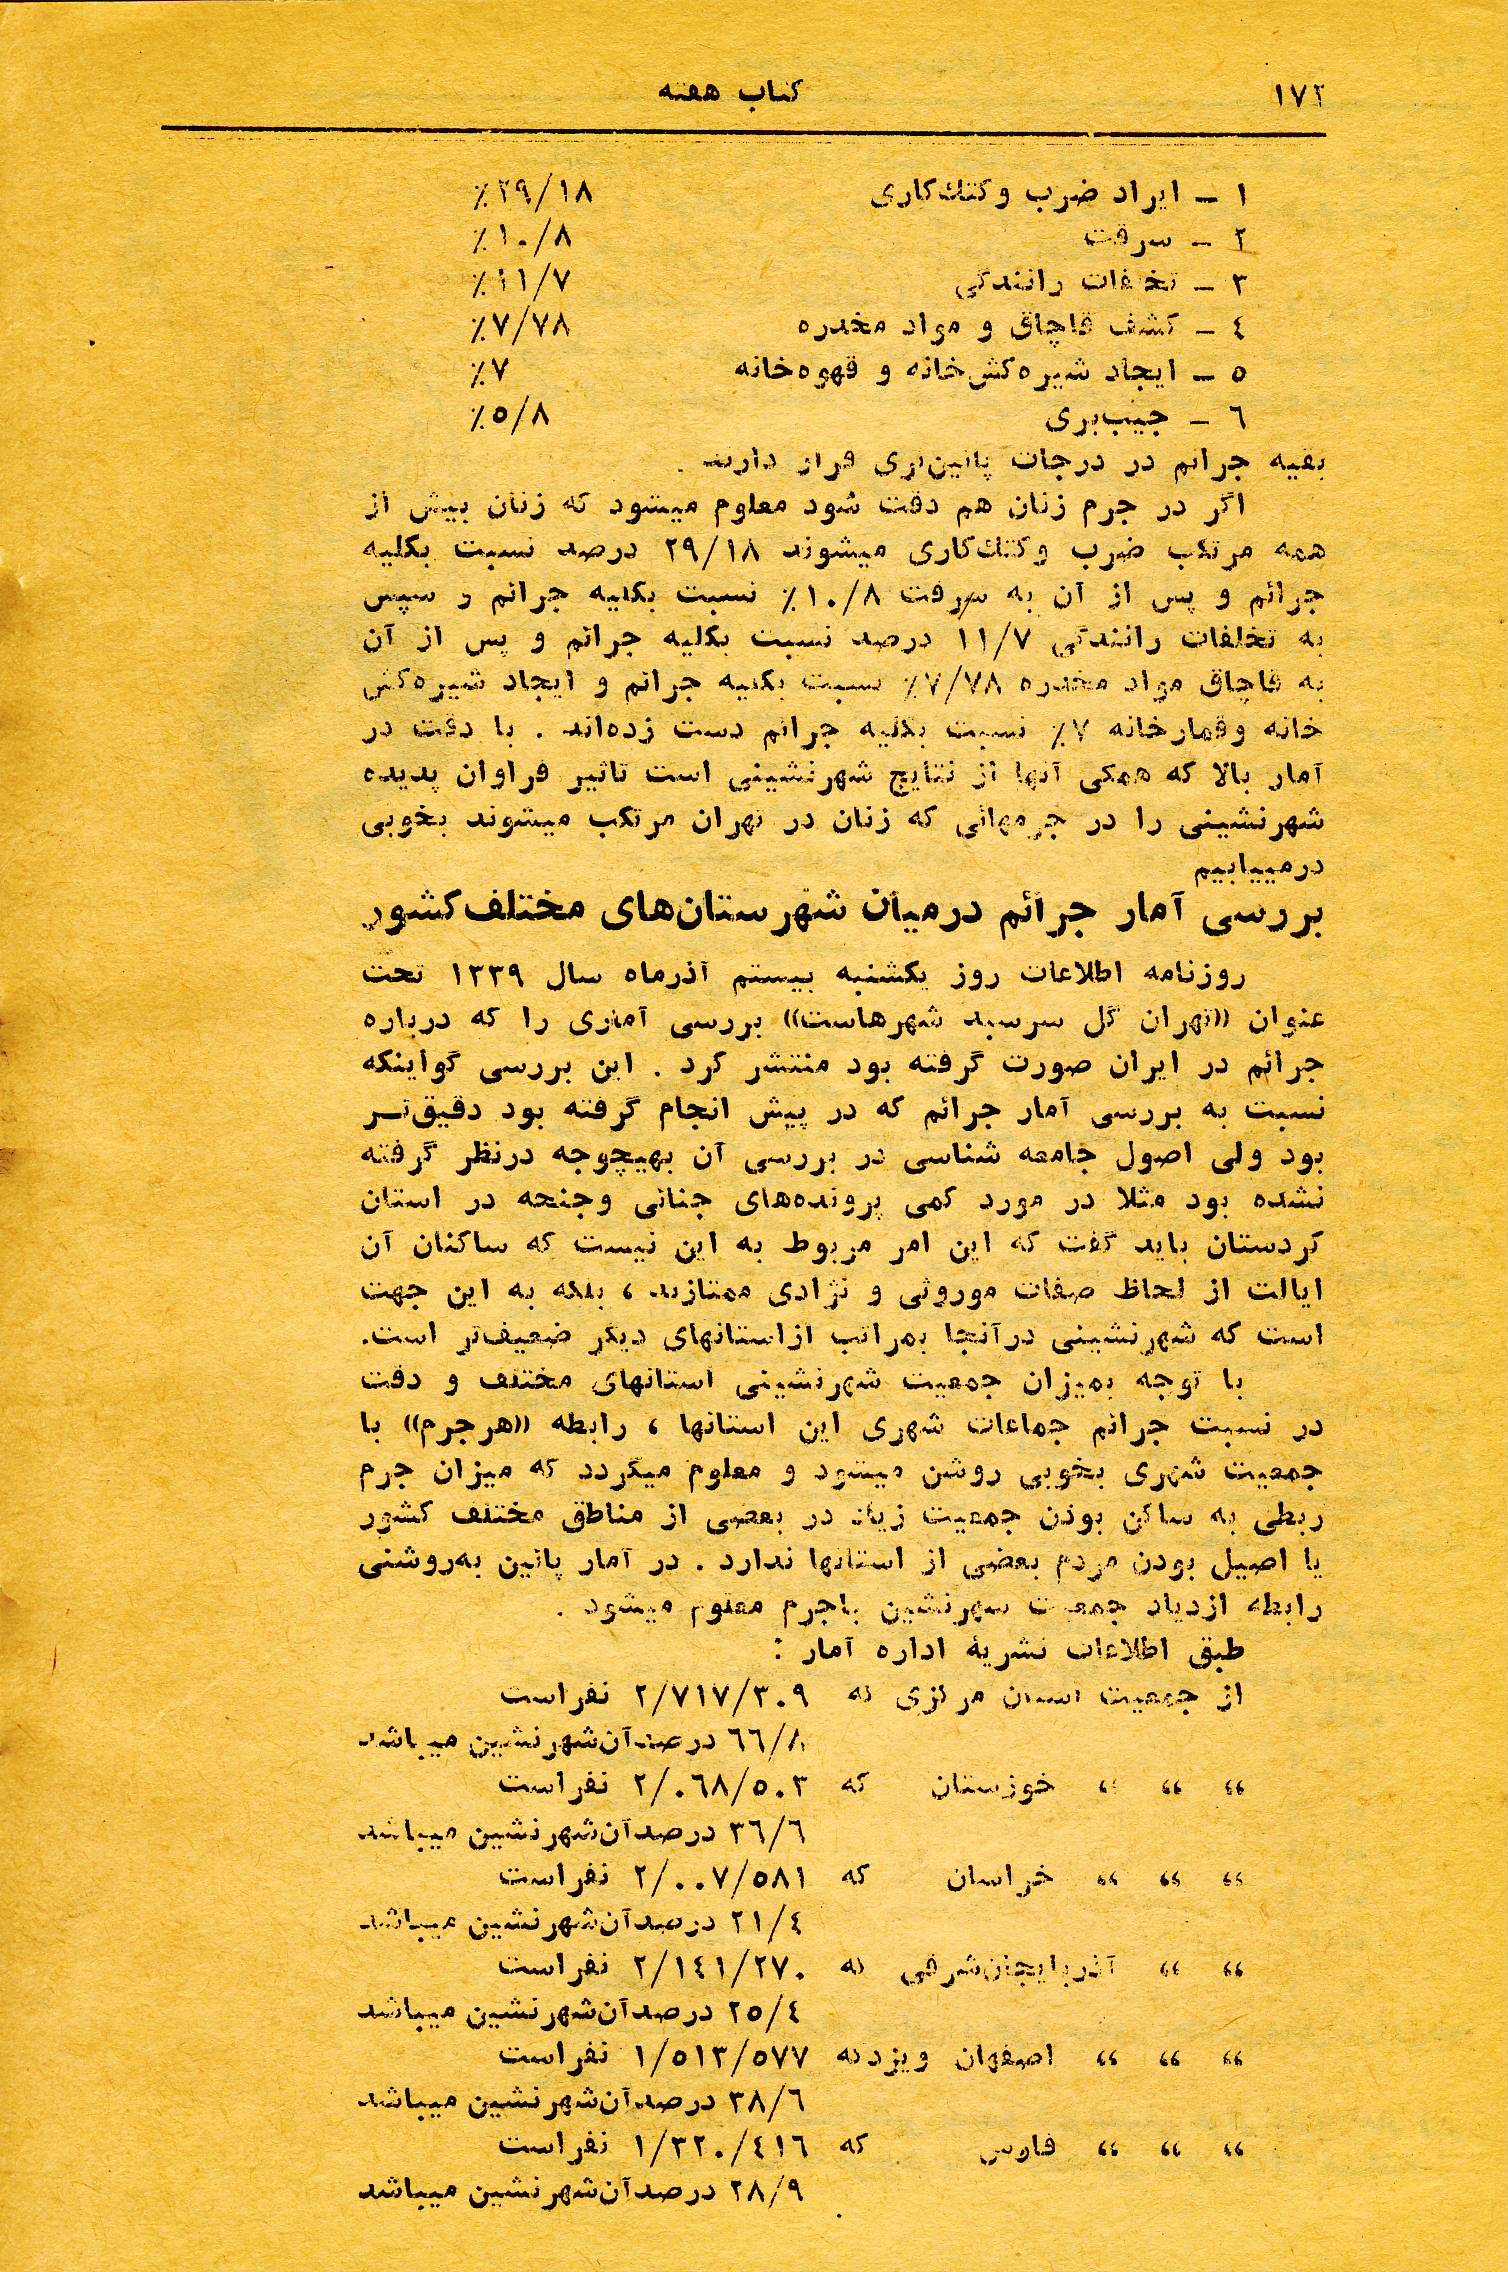 ١٧٢
کتاب هفته
١ - ایراد ضرب و کتك‌کاری ٢٩/١٨٪
٢ - سرقت ١٠/٨٪
٣ - تخلفات رانندگی ١١/٧٪
٤ - کشف قاچاق و مواد مخدره ٧/٧٨٪
٥ - ایجاد شیره‌کش‌خانه و قهوه‌خانه ٧٪
٦ - جیب‌بری ٥/٨٪
بقیه جرائم در درجات پائین‌تری قرار دارند .
اگر در جرم زنان هم دقت شود معلوم میشود که زنان بیش از
همه مرتکب ضرب و کتك‌کاری میشوند ٢٩/١٨ درصد نسبت بکلیه
جرائم و پس از آن به سرقت ١٠/٨٪ نسبت بکلیه جرائم و سپس
به تخلفات رانندگی ١١/٧ درصد نسبت بکلیه جرائم و پس از آن
به قاچاق مواد مخدره ٧/٧٨٪ نسبت بکلیه جرائم و ایجاد شیره‌کش
خانه وقمارخانه ٧٪ نسبت بکلیه جرائم دست زده‌اند . با دقت در
آمار بالا که همکی آنها از نتایج شهرنشینی است تاثیر فراوان پدیده
شهرنشینی را در جرمهائی که زنان در تهران مرتکب میشوند بخوبی
درمییابیم
بررسی آمار جرائم درمیان شهرستان‌های مختلف‌کشور
روزنامه اطلاعات روز یکشنبه بیستم آذرماه سال ١٣٣٩ تحت
عنوان «تهران گل سرسبد شهرهاست» بررسی آماری را که درباره
جرائم در ایران صورت گرفته بود منتشر کرد . این بررسی گواینکه
نسبت به بررسی آمار جرائم که در پیش انجام گرفته بود دقیق‌تر
بود ولی اصول جامعه شناسی در بررسی آن بهیچوجه درنظر گرفته
نشده بود مثلا در مورد کمی پرونده‌های جنائی وجنحه در استان
کردستان باید گفت که این امر مربوط به این نیست که ساکنان آن
ایالت از لحاظ صفات موروثی و نژادی ممتازند ، بلکه به این جهت
است که شهرنشینی درآنجا بمراتب ازاستانهای دیگر ضعیف‌تر است.
با توجه بمیزان جمعیت شهرنشینی استانهای مختلف و دقت
در نسبت جرائم جماعات شهری این استانها ، رابطه «هرجرم» با
جمعیت شهری بخوبی روشن میشود و معلوم میگردد که میزان جرم
ربطی به ساکن بودن جمعیت زیاد در بعضی از مناطق مختلف کشور
یا اصیل بودن مردم بعضی از استانها ندارد . در آمار پائین به‌روشنی
رابطه ازدیاد جمعیت شهرنشین باجرم معلوم میشود .
طبق اطلاعات نشریهٔ اداره آمار :
از جمعیت استان مرکزی که ٢/٧١٧/٣٠٩ نفراست
٦٦/٨ درصدآن‌شهرنشین میباشد
» » » خوزستان که ٢/٠٦٨/٥٠٣ نفراست
٣٦/٦ درصدآن‌شهرنشین میباشد
» » » خراسان که ٢/٠٠٧/٥٨١ نفراست
٢١/٤ درصدآن‌شهرنشین میباشد
» » آذربایجان‌شرقی که ٢/١٤١/٢٧٠ نفراست
٢٥/٤ درصدآن‌شهرنشین میباشد
» » » اصفهان ویزدکه ١/٥١٣/٥٧٧ نفراست
٣٨/٦ درصدآن‌شهرنشین میباشد
» » » فارس که ١/٣٢٠/٤١٦ نفراست
٢٨/٩ درصدآن‌شهرنشین میباشد